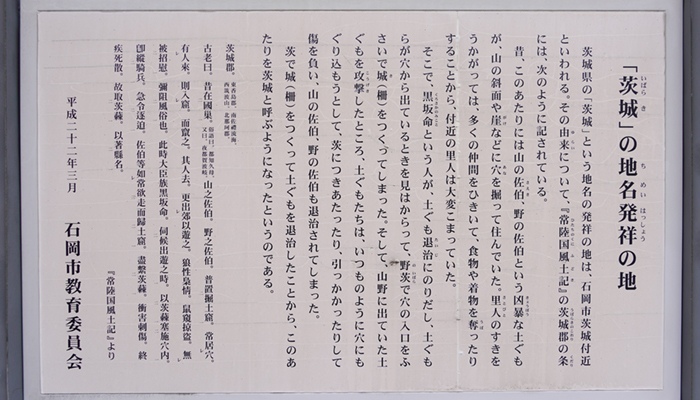 「茨城」の地名発祥の地
茨城県の「茨城」という地名の発祥の地は、石岡市茨城付近
といわれる。その由来について、『常陸国風土記』の茨城郡の条
には、次のように記されている。
昔、このあたりには山の佐伯、野の佐伯という凶暴な土ぐも
が、山の斜面や崖などに穴を掘って住んでいた。里人のすきを
うかがっては、多くの仲間をひきいて、食物や着物を奪ったり
することから、付近の里人は大変こまっていた。
そこで、黒坂命という人が、土ぐも退治にのりだし、土ぐも
らが穴から出ているときを見はからって、野茨で穴の入口をふ
さいで城(柵)をつくってしまった。そして、山野に出ていた土
ぐもを攻撃したところ、土ぐもたちは、いつものように穴にも
ぐり込もうとして、茨につきあたったり、引っかかったりして
傷を負い、山の佐伯、野の佐伯も退治されてしまった。
茨で城(柵)をつくって土ぐもを退治したことから、このあ
たりを茨城と呼ぶようになったというのである。
茨城郡。東香島郡、南佐禮流海、
西筑波山、北那珂郡。
古老曰。昔在國巣。俗語曰、都知久母、
又曰、夜都賀波岐。山之佐伯。野之佐伯。普置掘土窟。常居穴。
有人來。則入窟。而竄之。其人去。更出郊以遊之。狼性梟情。鼠窺掠盗。無
被招慰。彌阻風俗也。此時大臣族黒坂命。伺候出遊之時。以茨蕀塞施穴内。
卽縱騎兵。急令逐迫。佐伯等如常欲走而歸土窟。盡繫茨蕀。衝害刺傷。終
疾死散。故取茨蕀。以著縣名。
『常陸国風土記』より
平成二十二年三月
石岡市教育委員会